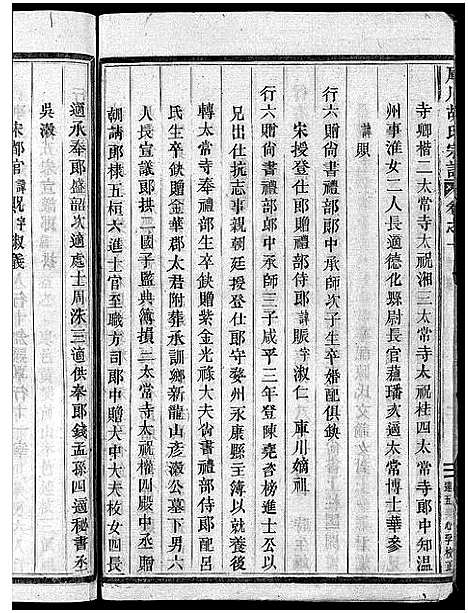 庫川胡氏宗譜 卷之一
寺卿楷二太常寺太祝湘三太常寺太祝桂四太常寺太祝中溫
州事淮女二人長適德化縣尉長官蘊璠次適太常博士華參
諱賜
行六贈尚書禮部郎中承師次子生卒婚配俱缺
宋授登仕郎贈禮部侍郎諱賑字淑仁 庫川嫡祖
行六贈尚書禮部郎中承師三子咸平三年登陳堯咨榜進士公以
兄出仕抗志事親朝廷授登仕郎守婺州永康縣主簿以就養後
轉太常寺奉禮部生卒缺贈紫金光祿大夫尚書禮部侍郎配呂
氏生卒缺贈金華郡太君附葬承訓鄉新龍山彥澂公墓下男六
人長宣議郎拱二國子監典簿損三太常寺太祝權四殿中丞
朝請郎樣五桓六進士官至職方司郎中贈大中大夫枚女四長
行適承奉郎盛韶次適處士周洙三適供奉郎錢孟孫四適秘書丞
吳澂
宋都官諱況字淑義